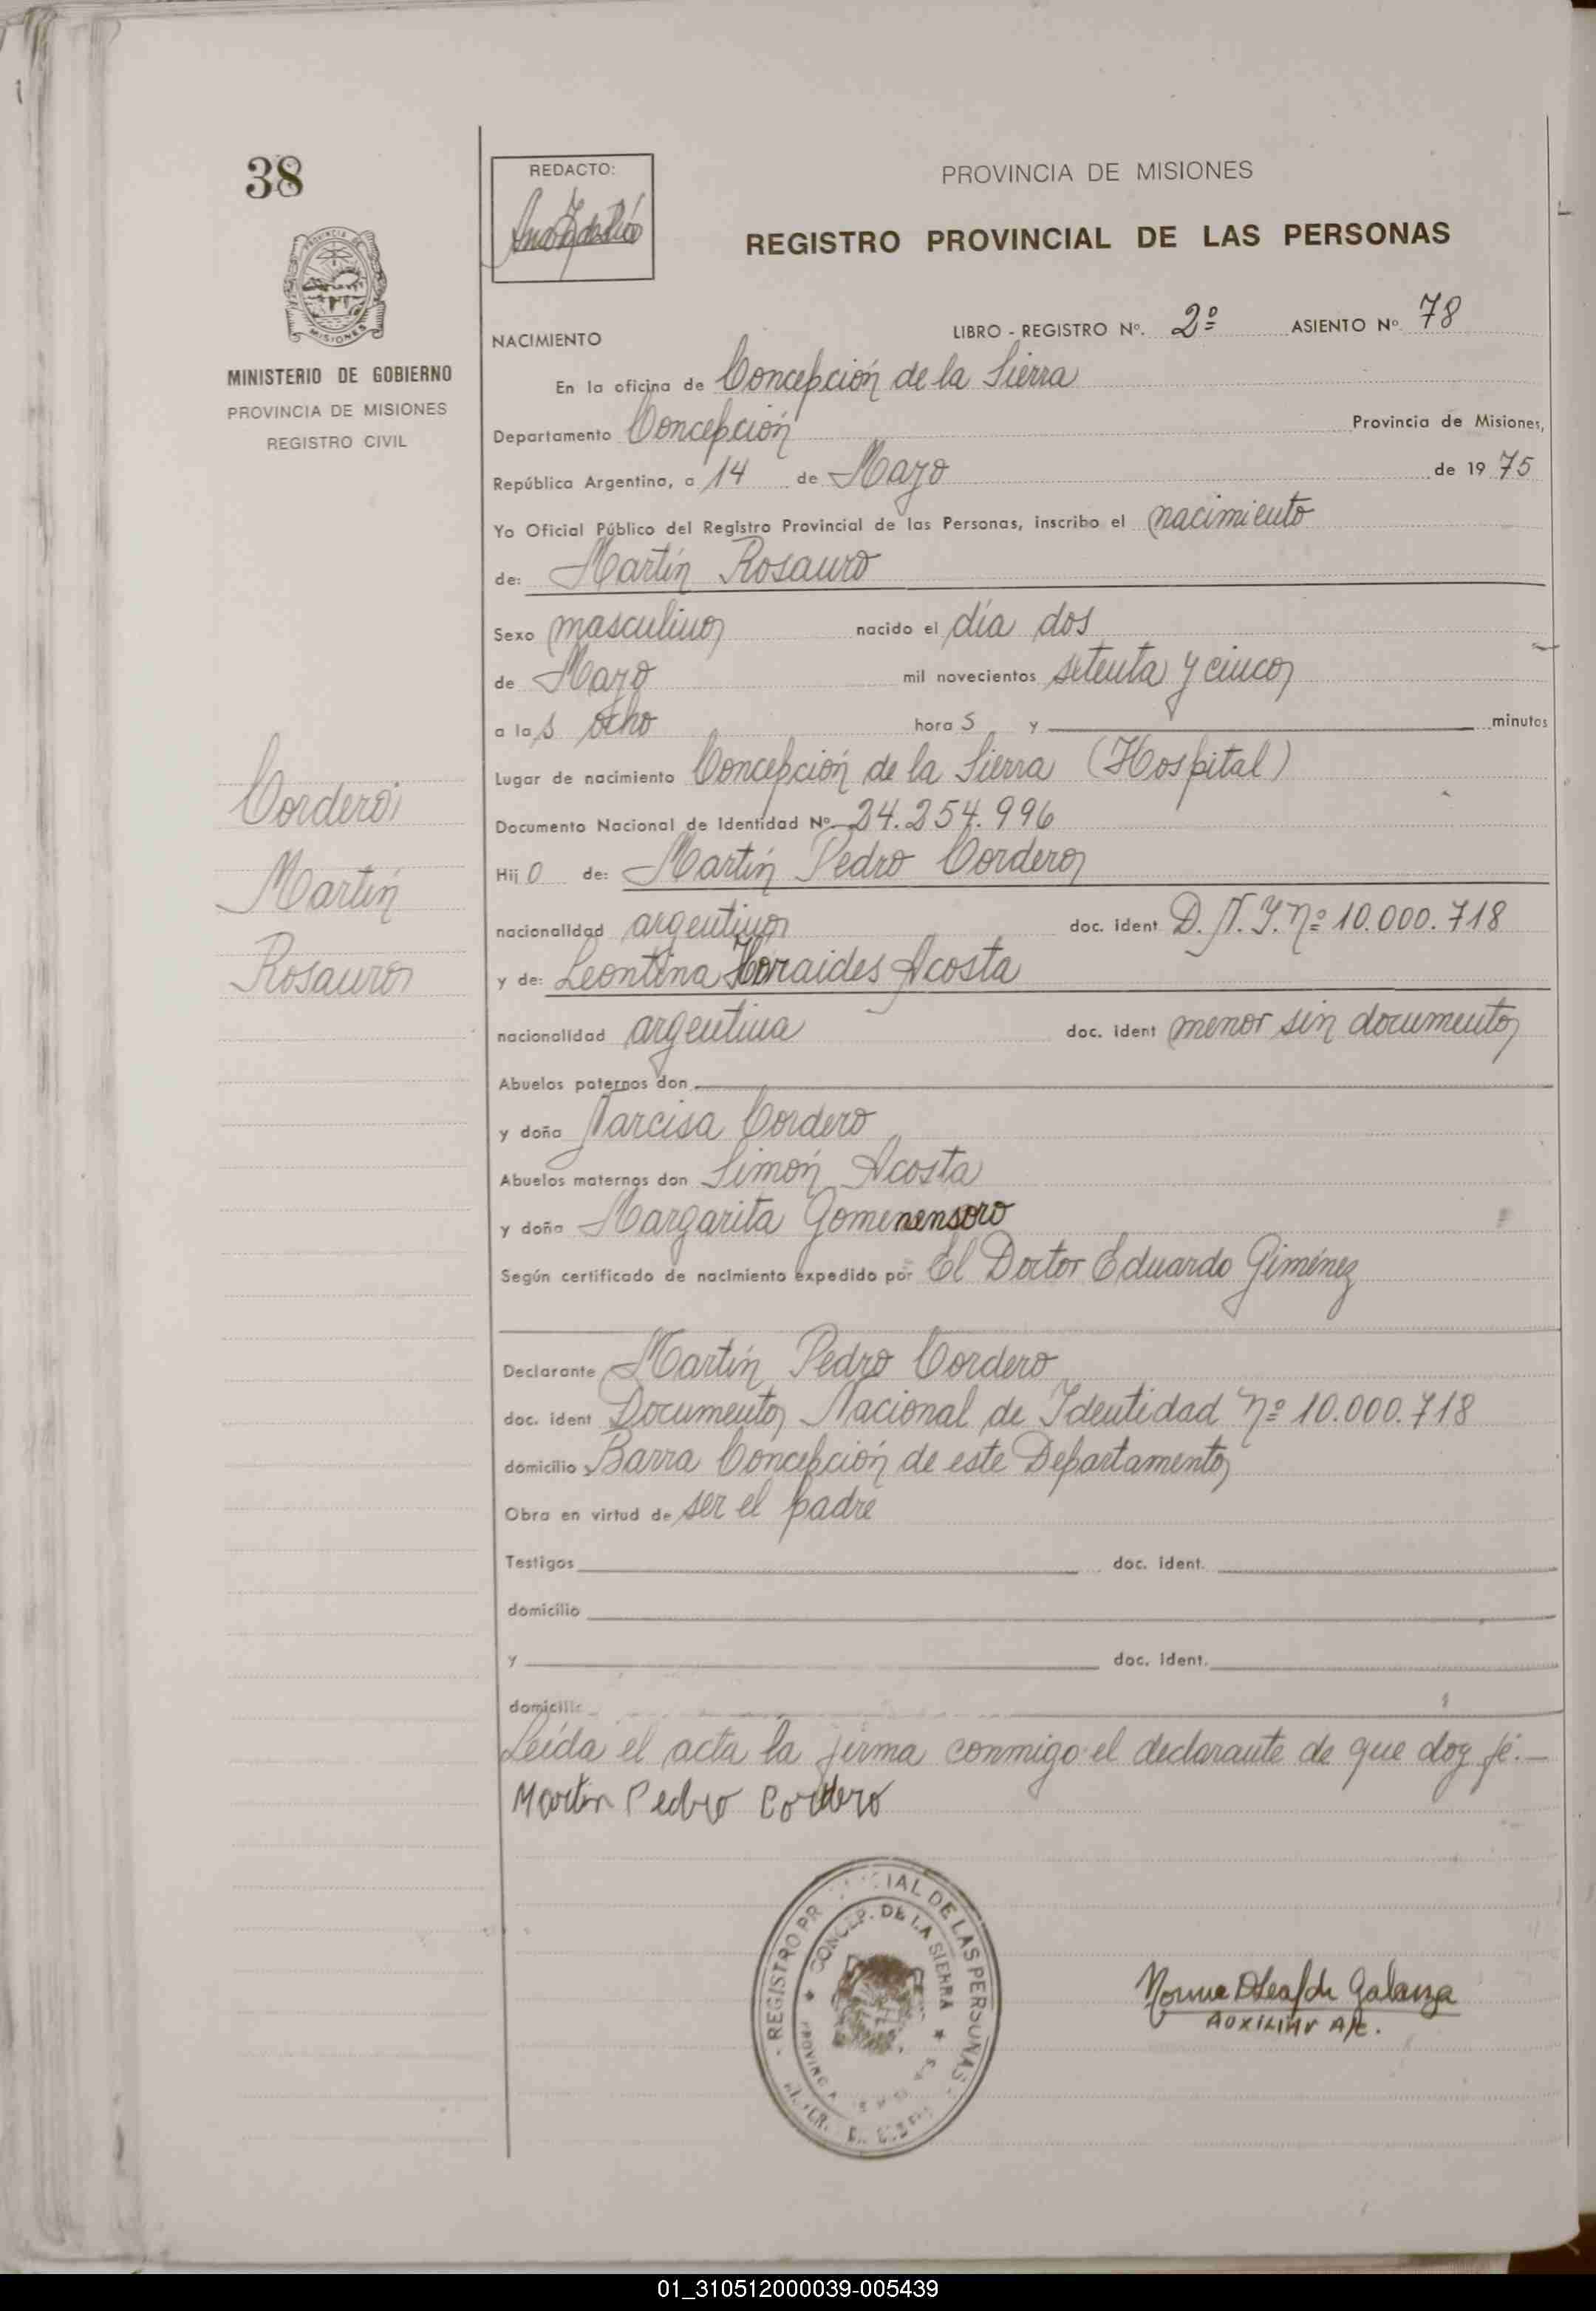 38
REDACTO:
PROVINCIA DE MISIONES
REGISTRO PROVINCIAL DE LAS PERSONAS
PROVINCIA DE
MISIONES
MINISTERIO DE GOBIERNO
PROVINCIA DE MISIONES
REGISTRO CIVIL
NACIMIENTO
LIBRO - REGISTRO Nº. 2º ASIENTO Nº. 78
En la oficina de Concepción de la Sierra
Departamento Concepción Provincia de Misiones,
República Argentina, a 14 de Mayo de 1975
Yo Oficial Público del Registro Provincial de las Personas, inscribo el nacimiento
de: Martín Rosauro
Sexo masculino nacido el día dos
de Mayo mil novecientos setenta y cinco
a las ocho horas y minutos
Lugar de nacimiento Concepción de la Sierra (Hospital)
Documento Nacional de Identidad Nº 24.254.996
Hijo de: Martín Pedro Cordero
nacionalidad argentino doc. ident D.N.I. Nº 10.000.718
y de: Leontina Horaides Acosta
nacionalidad argentina doc. ident menor sin documento
Abuelos paternos don
y doña Narcisa Cordero
Abuelos maternos don Simón Acosta
y doña Margarita Gomenensoro
Según certificado de nacimiento expedido por El Doctor Eduardo Giménez
Declarante Martín Pedro Cordero
doc. ident Documento Nacional de Identidad Nº 10.000.718
domicilio Barra Concepción de este Departamento
Obra en virtud de ser el padre
Testigos doc. ident.
domicilio
y doc. ident.
domicilio
Leída el acta la firma conmigo el declarante de que doy fé.—
Martin Pedro Cordero
Cordero
Martín
Rosauro
REGISTRO DE LAS PERSONAS
CONCEP. DE LA SIERRA
Norma de Galarza
AUXILIAR A/C.
01_310512000039-005439